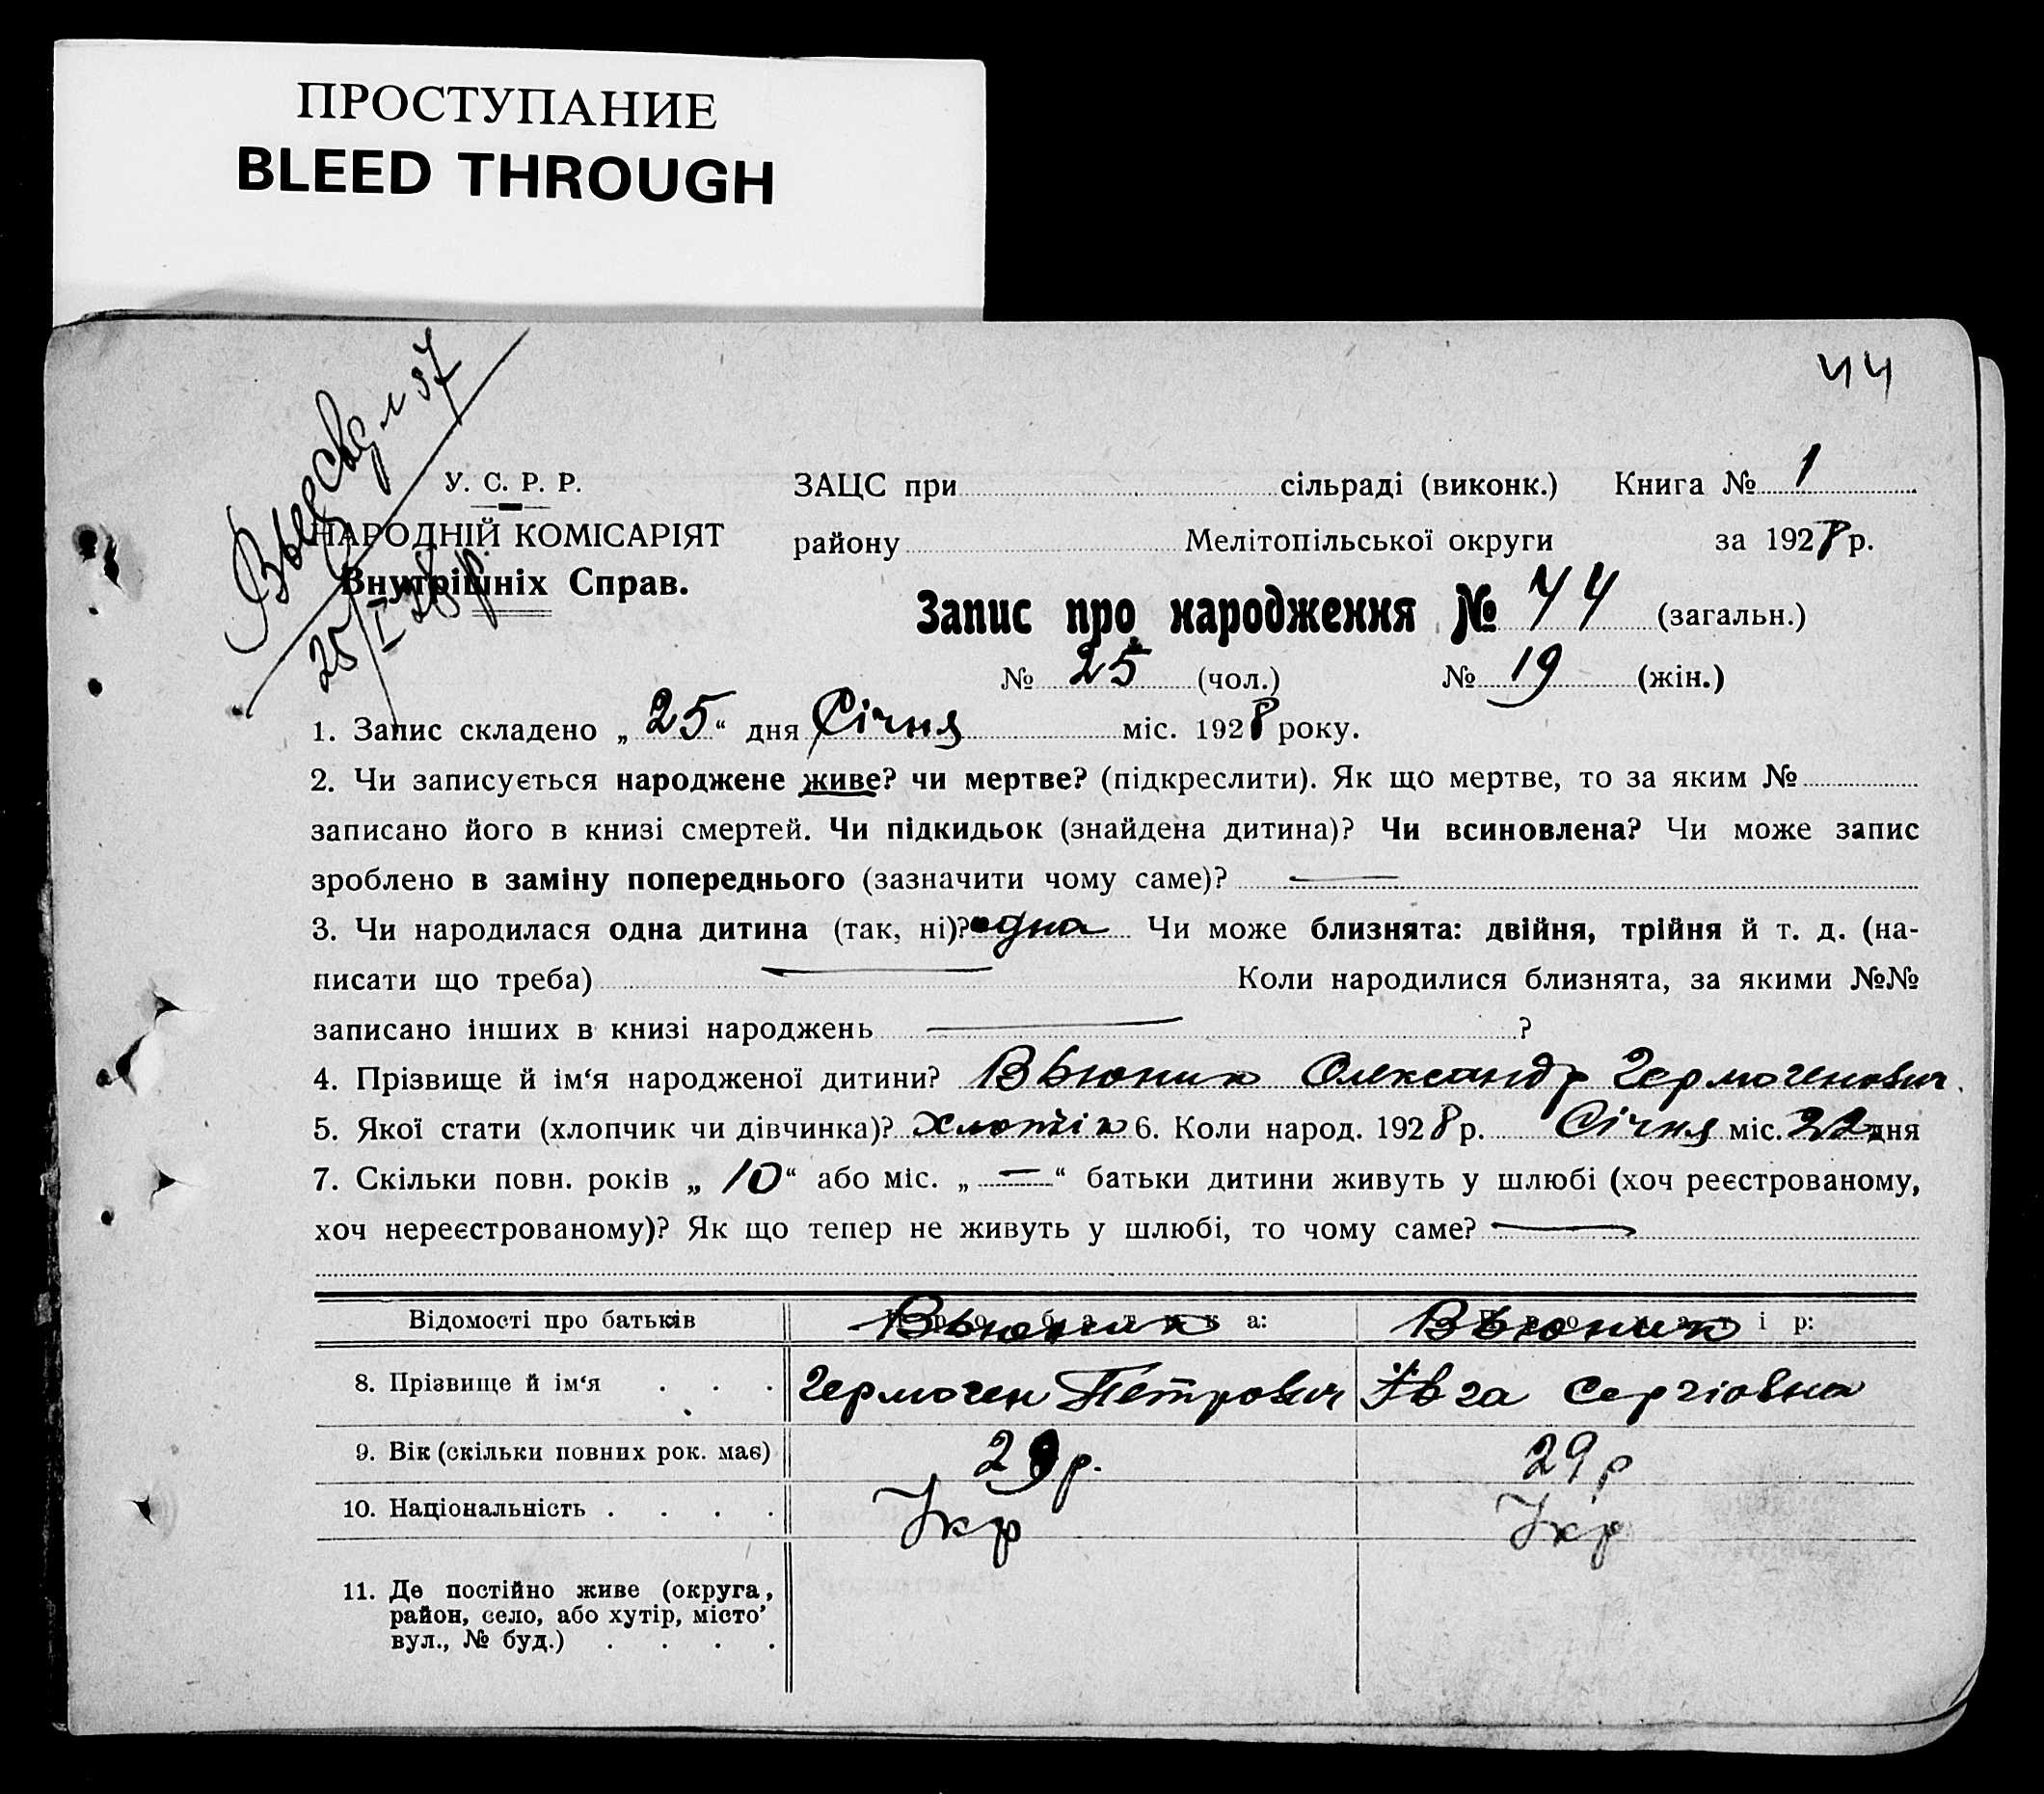 ПРОСТУПАНИЕ
BLEED THROUGH
44
25/I 28 р.
У. С. Р. Р.
НАРОДНІЙ КОМІСАРІЯТ
Внутрішніх Справ.
ЗАЦС при сільраді (виконк.) Книга № 1
району Мелітопільської округи за 1928 р.
Запис про народження № 44 (загальн.)
№ 25 (чол.) № 19 (жін.)
1. Запис складено „ 25 “ дня Січня міс. 1928 року.
2. Чи записується народжене живе? чи мертве? (підкреслити). Як що мертве, то за яким №
записано його в книзі смертей. Чи підкидьок (знайдена дитина)? Чи всиновлена? Чи може запис
зроблено в заміну попереднього (зазначити чому саме)? —
3. Чи народилася одна дитина (так, ні)? одна Чи може близнята: двійня, трійня й т. д. (на-
писати що треба) — Коли народилися близнята, за якими №№
записано інших в книзі народжень — ?
4. Прізвище й ім‘я народженої дитини? Вьюник Олександр Гермогенович
5. Якої стати (хлопчик чи дівчинка)? хлопчик 6. Коли народ. 1928 р. Січня міс. 22 дня
7. Скільки повн. років „ 10 “ або міс. „ — “ батьки дитини живуть у шлюбі (хоч реєстрованому,
хоч нереєстрованому)? Як що тепер не живуть у шлюбі, то чому саме? —
Відомості про батьків Про батька: Вьюник Про матір: Вьюник
8. Прізвище й ім‘я . . . Гермоген Петрович Івга Сергіовна
9. Вік (скільки повних рок. має) 29 р. 29 р
10. Національність . . . . Укр Укр
11. Де постійно живе (округа,
район, село, або хутір, місто’
вул., № буд.) . . . .